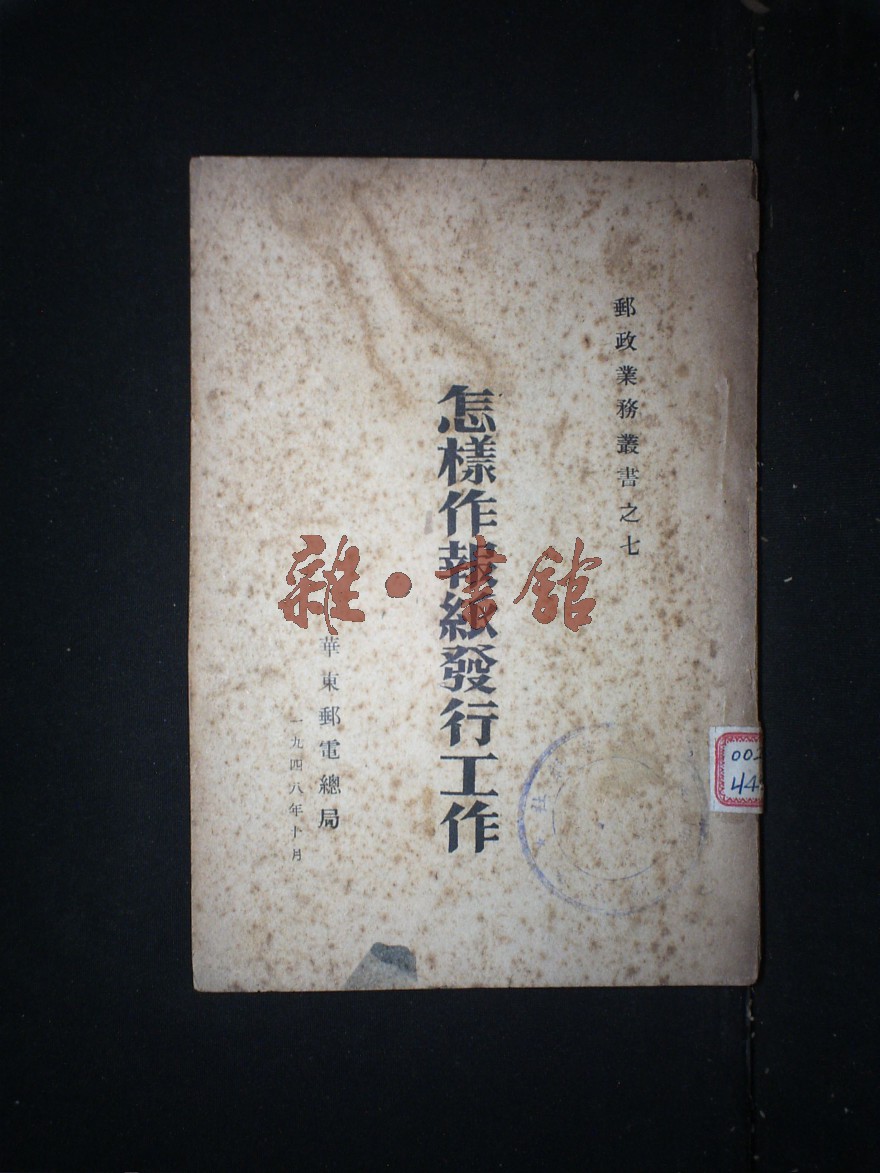 郵政業務叢書之七
怎樣作報紙發行工作
華東郵電總局
一九四八年十月
雜·書館
002